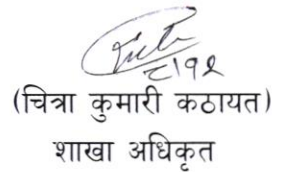 ८।१२
(चित्रा कुमारी कठायत)
शाखा अधिकृत